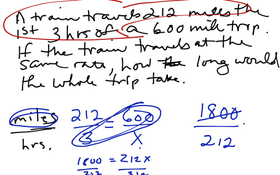 A train travels 212 miles the
1st 3 hrs of a 600 mile trip.
If the train travels at the
same rate, how long would
the whole trip take.
miles 212 = 600 1800
hrs. 3 X 212
1800 = 212x
212 212